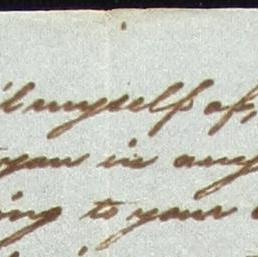 myself of,
you in any
ing to your